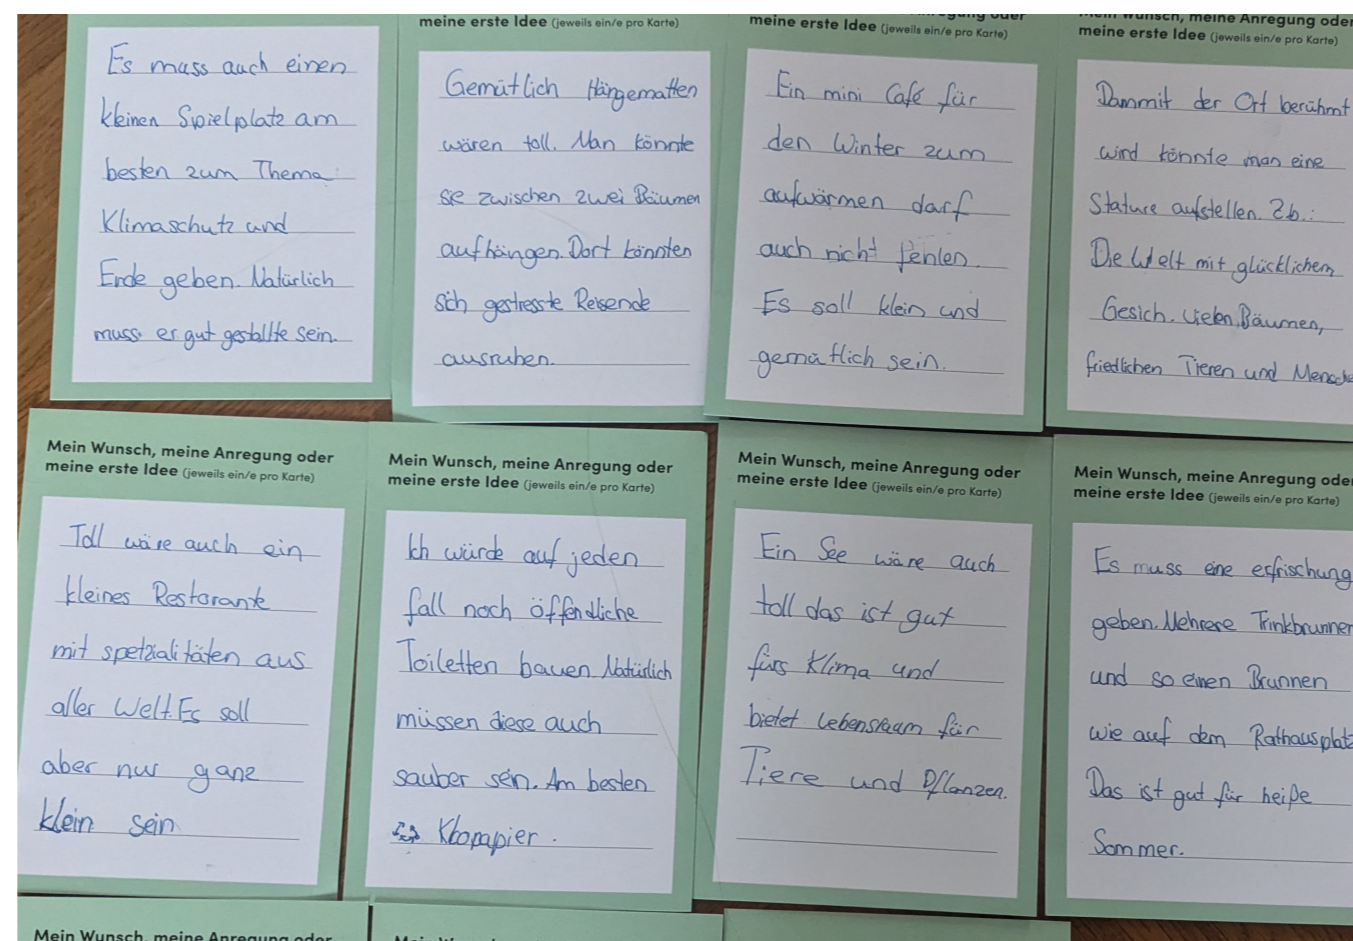 Es muss auch einen
kleinen Spielplatz am
besten zum Thema
Klimaschutz und
Erde geben. Natürlich
muss er gut gestallte sein.
meine erste Idee (jeweils ein/e pro Karte)
Gemütlich Hängematten
wären toll. Man könnte
sie zwischen zwei Bäumen
aufhängen. Dort könnten
sich gestresste Reisende
ausruhen.
meine erste Idee (jeweils ein/e pro Karte)
Ein mini Café für
den Winter zum
aufwärmen darf
auch nicht fehlen.
Es soll klein und
gemütlich sein.
Mein Wunsch, meine Anregung oder
meine erste Idee (jeweils ein/e pro Karte)
Dammit der Ort berühmt
wird könnte man eine
Stature aufstellen. Zb.:
Die Welt mit glücklichem
Gesich. vielen Bäumen,
friedlichen Tieren und
Mein Wunsch, meine Anregung oder
meine erste Idee (jeweils ein/e pro Karte)
Toll wäre auch ein
kleines Restorante
mit spetzialitäten aus
aller Welt. Es soll
aber nur ganz
klein sein
Mein Wunsch, meine Anregung oder
meine erste Idee (jeweils ein/e pro Karte)
Ich würde auf jeden
fall noch öffendliche
Toiletten bauen. Natürlich
müssen diese auch
sauber sein. Am besten
Klopapier.
Mein Wunsch, meine Anregung oder
meine erste Idee (jeweils ein/e pro Karte)
Ein See wäre auch
toll das ist gut
fürs Klima und
bietet Lebensraum für
Tiere und Pflanzen.
Mein Wunsch, meine Anregung oder
meine erste Idee (jeweils ein/e pro Karte)
Es muss eine erfrischung
geben. Mehrere Trinkbrunnen
und so einen Brunnen
wie auf dem Rathausplatz
Das ist gut für heiße
Sommer.
Mein Wunsch, meine Anregung oder